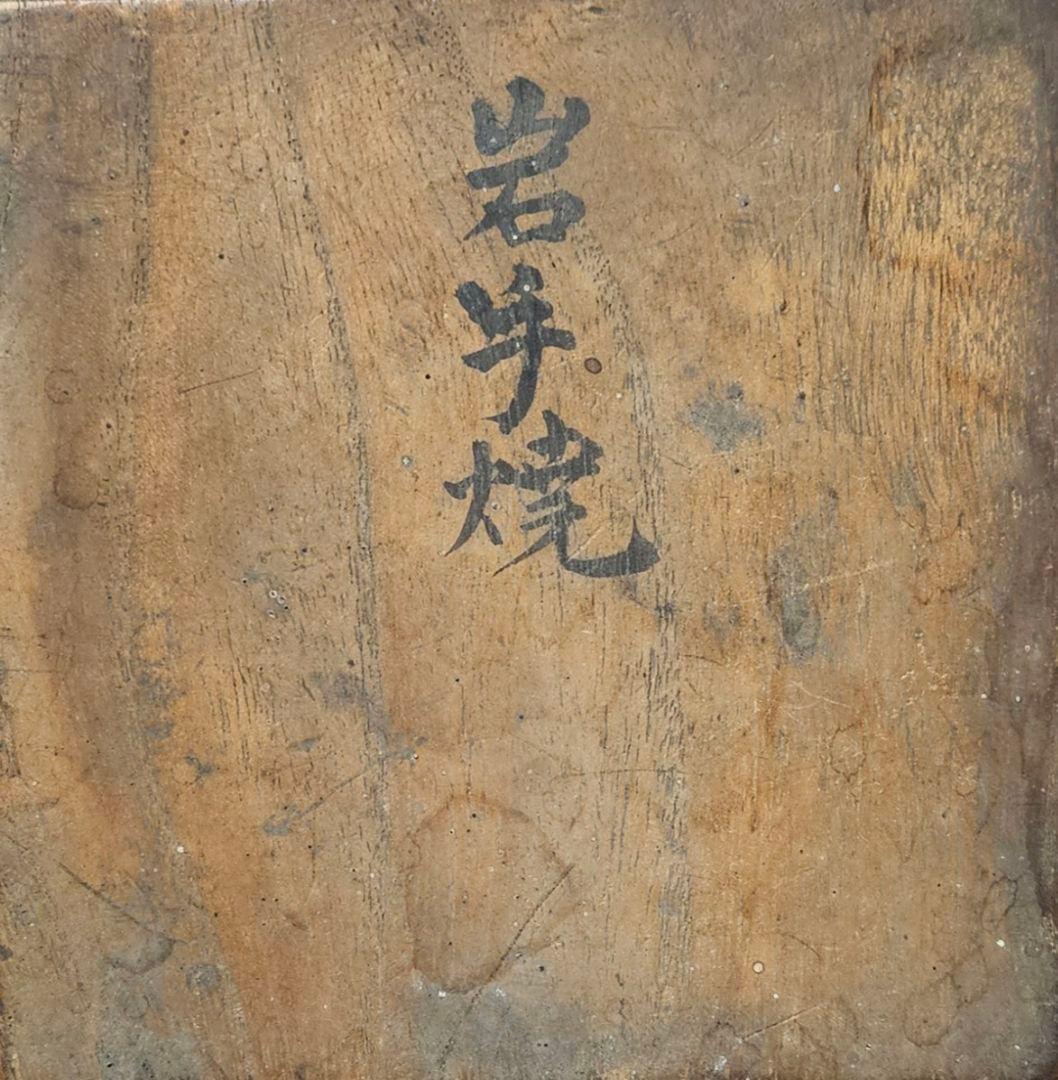 岩手焼